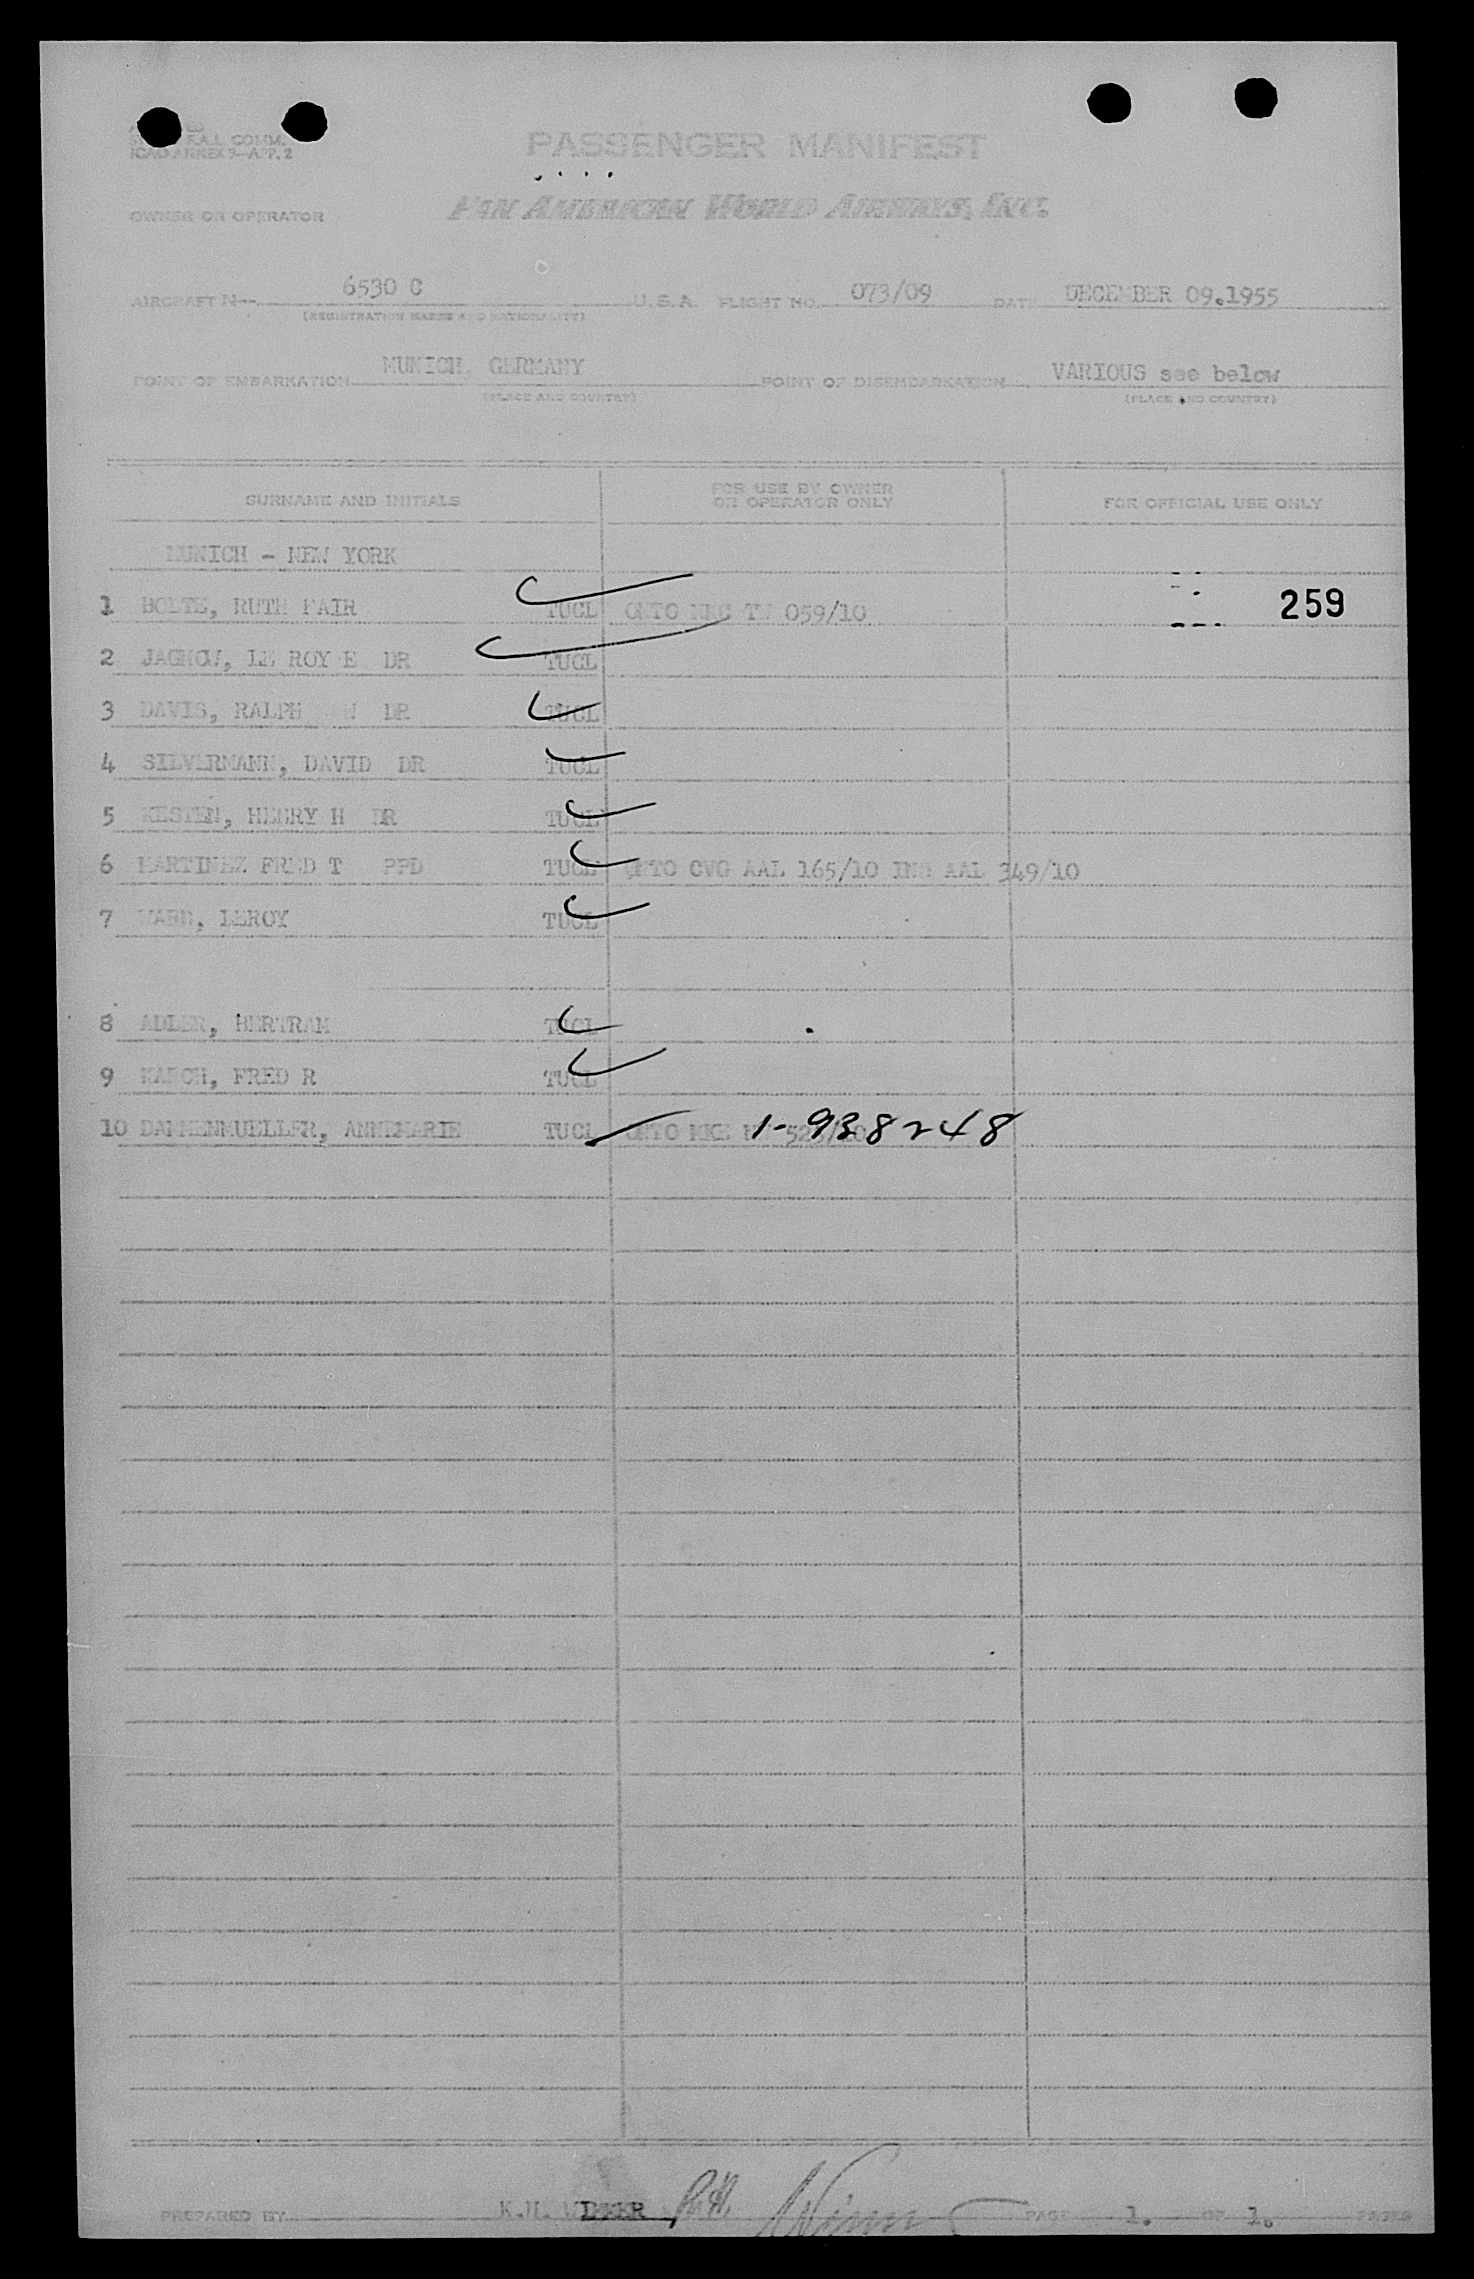 F.A.L. COMM.
ICAO ANNEX 9—APP. 2
PASSENGER MANIFEST
OWNER OR OPERATOR
PAN AMERICAN WORLD AIRWAYS, INC.
AIRCRAFT N— 6530 C U.S.A. FLIGHT NO. 073/09 DATE DECEMBER 09.1955
(REGISTRATION MARKS AND NATIONALITY)
POINT OF EMBARKATION MUNICH, GERMANY POINT OF DISEMBARKATION VARIOUS see below
(PLACE AND COUNTRY) (PLACE AND COUNTRY)
SURNAME AND INITIALS FOR USE BY OWNER OR OPERATOR ONLY FOR OFFICIAL USE ONLY
MUNICH - NEW YORK
1 BOLTE, RUTH FAIR TUCL ONTO MKC TW 059/10 259
2 LE ROY E DR TUCL
3 DAVIS, RALPH W DR TUCL
4 SILVERMANN, DAVID DR TUCL
5 KESTEN, HENRY H DR TUCL
6 MARTINEZ FRED T PPD TUCL ONTO CVG AAL 165/10 IND AAL 349/10
7 LEROY TUCL
8 ADLER, BERTRAM TUCL
9 KARCH, FRED R TUCL
10 DANNENMUELLER, ANNEMARIE TUCL ONTO MKE 1-938248
PREPARED BY K.H. PAGE 1. OF 1. PAGES